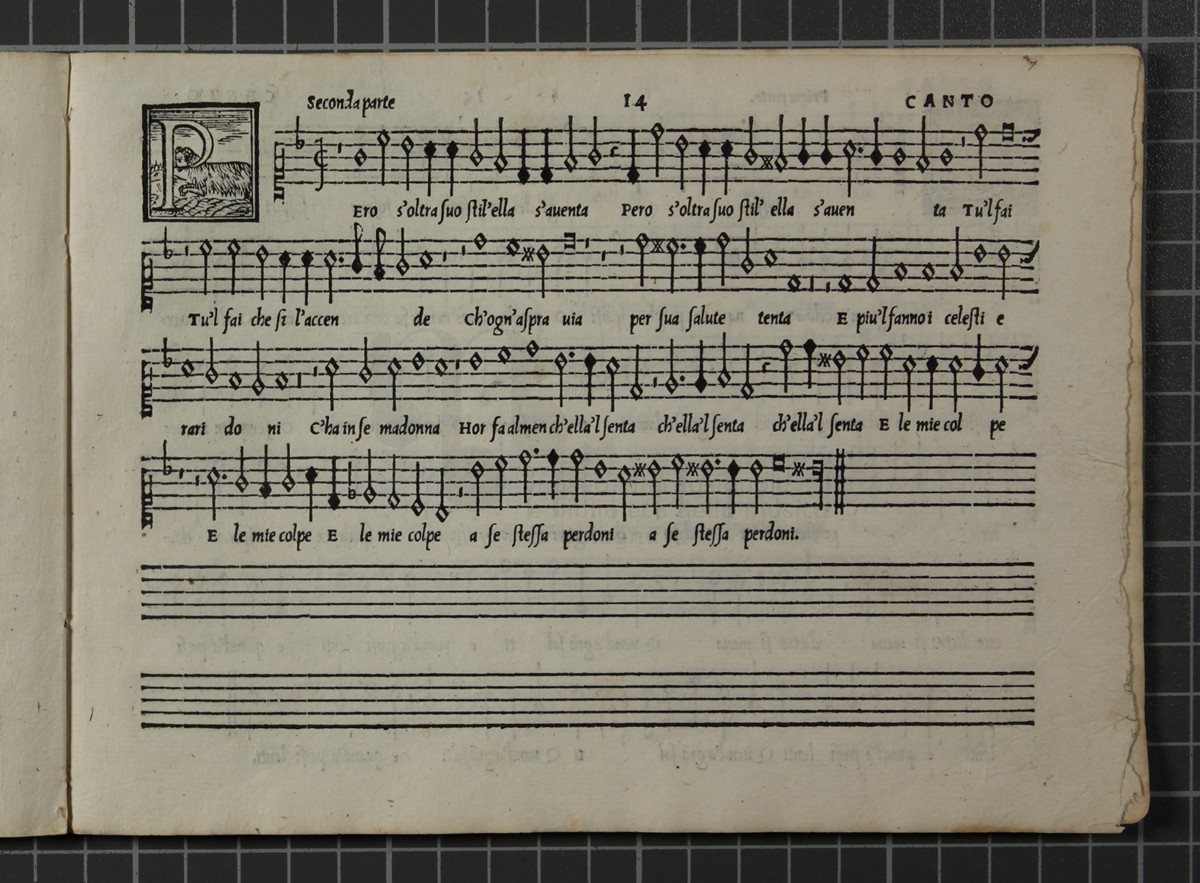 Seconda parte 14 CANTO
PEro s'oltra suo stil'ella s'auenta Pero s'oltra suo stil' ella s'auen ta Tu'l fai
Tu'l fai che si l'accen de Ch'ogn'aspra uia per sua salute tenta E piu'l fanno i celesti e
rari do ni C'ha in se madonna Hor fa almen ch'ella'l senta ch'ella'l senta ch'ella'l senta E le mie col pe
E le mie colpe E le mie colpe a se stessa perdoni a se stessa perdoni.